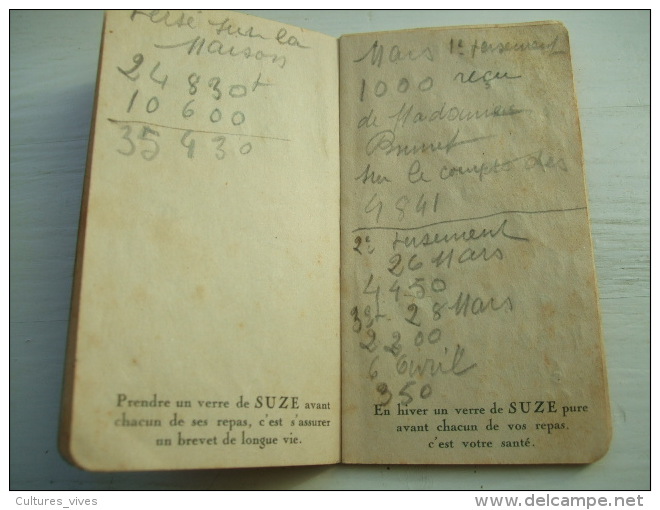 Versé sur la
Maison
24 830 f
10 600
35 430
Prendre un verre de SUZE avant
chacun de ses repas, c'est s'assurer
un brevet de longue vie.
Mars 1er versement
1000 reçu
de Madame
Brunet
sur le compte des
4841
2e versement
26 Mars
4450
3e 28 Mars
2200
6 Avril
350
En hiver un verre de SUZE pure
avant chacun de vos repas.
c'est votre santé.
Cultures_vives
delcampe.net